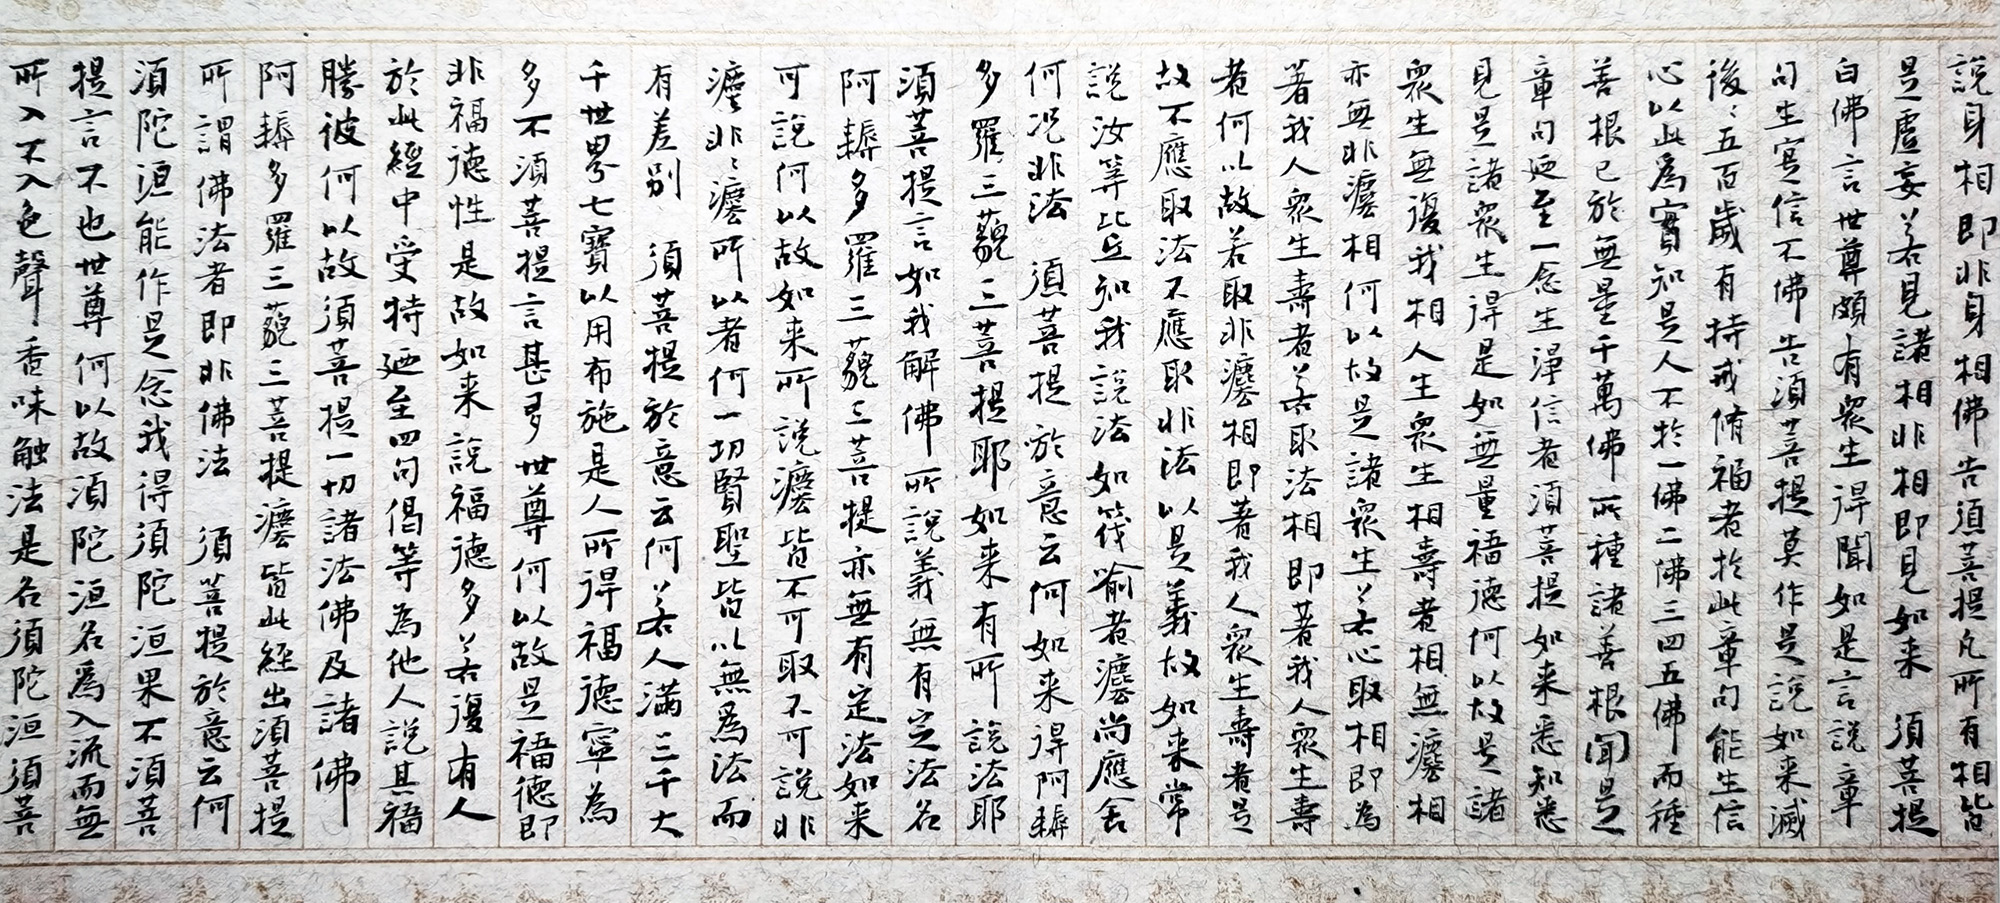 說身相即非身相佛告須菩提凡所有相皆
是虛妄若見諸相非相即見如来 須菩提
白佛言世尊頗有眾生得聞如是言說章
句生實信不佛告須菩提莫作是說如来滅
後〻五百歲有持戒脩福者於此章句能生信
心以此為實知是人不於一佛二佛三四五佛而種
善根已於無量千萬佛所種諸善根聞是
章句廼至一念生淨信者須菩提如来悉知悉
見是諸眾生得是如無量福德何以故是諸
眾生無復我相人生眾生相壽者相無灋相
亦無非灋相何以故是諸眾生若心取相即為
著我人眾生壽者若取法相即著我人眾生壽
者何以故若取非灋相即著我人眾生壽者是
故不應取法不應取非法以是義故如来常
說汝等比丘知我說法如筏喻者灋尚應舍
何況非法 須菩提於意云何如来得阿耨
多羅三藐三菩提耶如来有所說法耶
須菩提言如我解佛所說義無有定法名
阿耨多羅三藐三菩提亦無有定法如来
可說何以故如来所說灋皆不可取不可說非
灋非〻灋所以者何一切賢聖皆以無為法而
有差別 須菩提於意云何若人滿三千大
千世界七寶以用布施是人所得福德寧為
多不須菩提言甚多世尊何以故是福德即
非福德性是故如来說福德多若復有人
於此經中受持廼至四句偈等為他人說其福
勝彼何以故須菩提一切諸法佛及諸佛
阿耨多羅三藐三菩提灋皆此經出須菩提
所謂佛法者即非佛法 須菩提於意云何
須陀洹能作是念我得須陀洹果不須菩
提言不也世尊何以故須陀洹名為入流而無
所入不入色聲香味触法是名須陀洹須菩